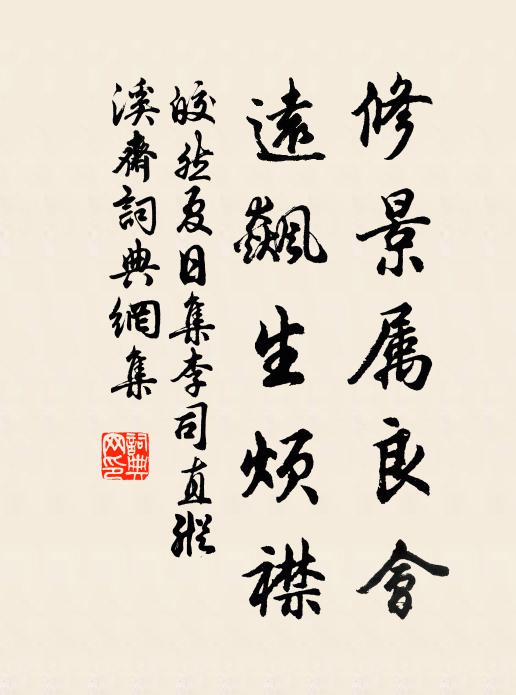 修景属良會
遠飆生煩襟
皎然夏日集李司直縱
溪齋詞典網集
詞典網印